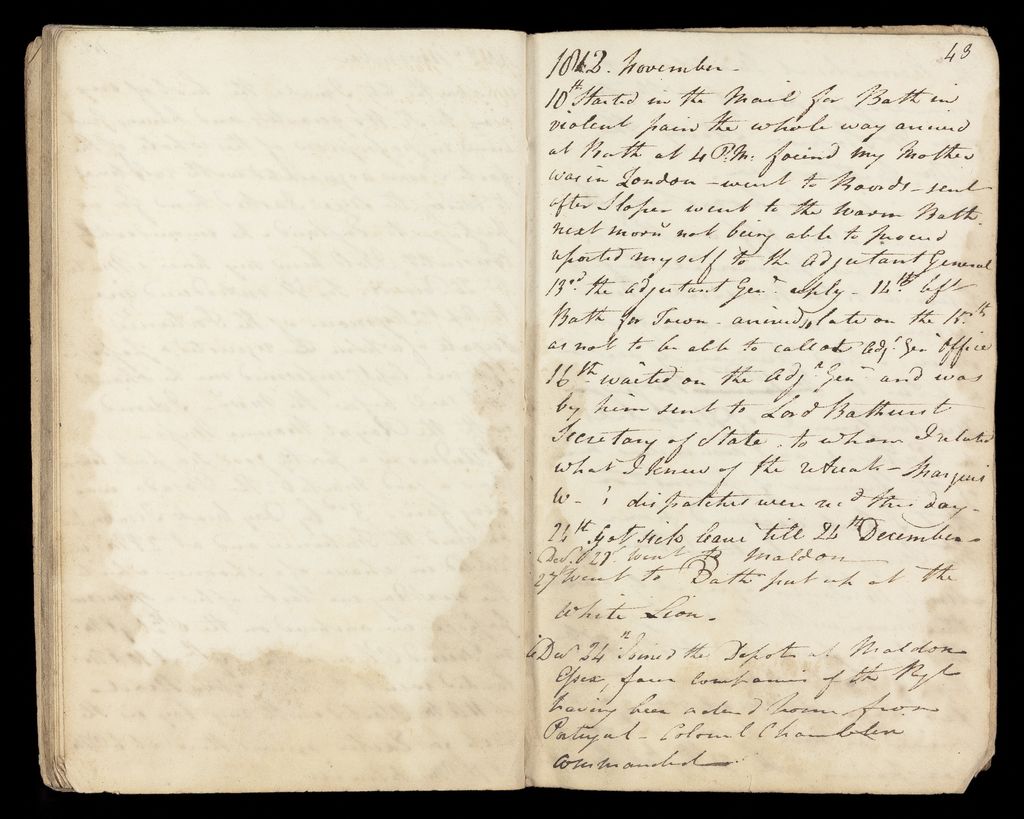 43
1812. November -
10th Started in the Mail for Bath in
violent pain the whole way arrived
at Bath at 4 P.M: found my Mother
was in London - went to - sent
after Sloper went to the Warm Bath
next morng not being able to proceed
reported myself to the Adjutant General
13th the Adjutant Genl reply - 14th left
Bath for Town - arrived so late on the 15th
as not to be able to call at Adjt Genl Office
16th waited on the Adjt Genl and was
by him sent to Lord Bathurst
Secretary of State to whom I related
what I knew of the retreat - Marquis
W - 's dispatches were recd this day -
24th Got sick leave till 24th December -
Decr 21st went to Maldon
27th went to Bath put up at the
White Lion -
Decr 24th Joined the Depot at Maldon
Essex, four Companies of the Regt
having been ordered home from
Portugal - Colonel
commanded